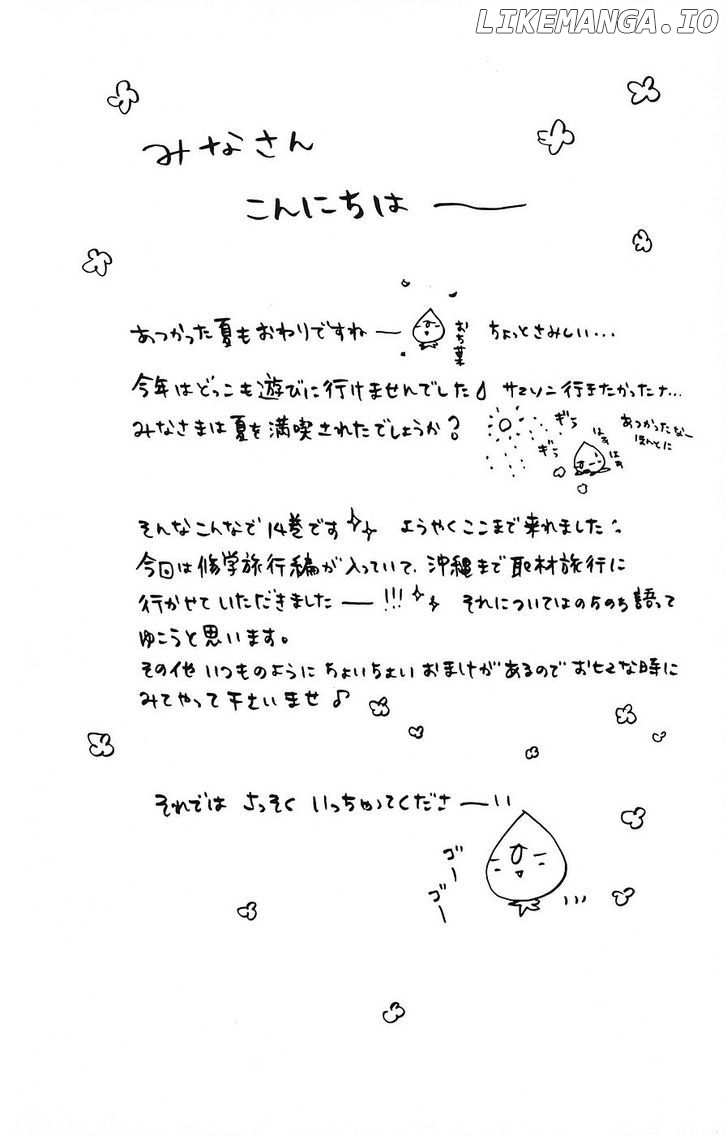 LIKEMANGA.IO
みなさん
こんにちは ――
あつかった夏もおわりですね―
おち葉
ちょっとさみしい…
今年はどっこも遊びに行けませんでした
サマソニ行きたかったナ…
みなさまは夏を満喫されたでしょうか?
ぎら
ぎら
はぁ
はぁ
あつかったなー
ほんとに
そんなこんなで14巻です
ようやくここまで来れました
今回は修学旅行編が入っていて、沖縄まで取材旅行に
行かせていただきました―!!!
それについてはのちのち語って
ゆこうと思います。
その他いつものようにちょいちょいおまけがあるのでおヒマな時に
みてやって下さいませ♪
それでは さっそく いっちゃってくださ―い
ゴー
ゴー